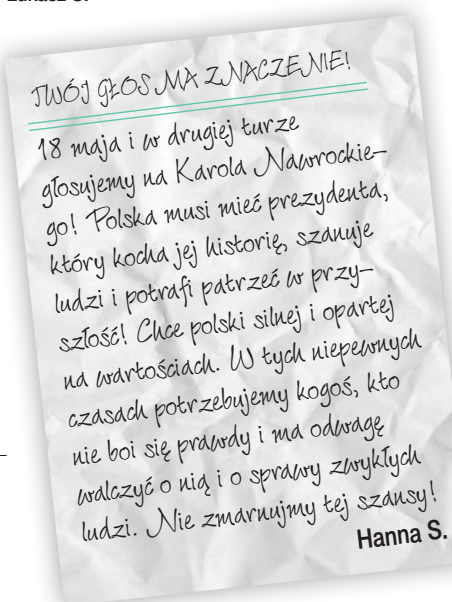 TWÓJ GŁOS MA ZNACZENIE!
18 maja i w drugiej turze
głosujemy na Karola Nawrockie-
go! Polska musi mieć prezydenta,
który kocha jej historię, szanuje
ludzi i potrafi patrzeć w przy-
szłość! Chce polski silnej i opartej
na wartościach. W tych niepewnych
czasach potrzebujemy kogoś, kto
nie boi się prawdy i ma odwagę
walczyć o nią i o sprawy zwykłych
ludzi. Nie zmarnujmy tej szansy!
Hanna S.